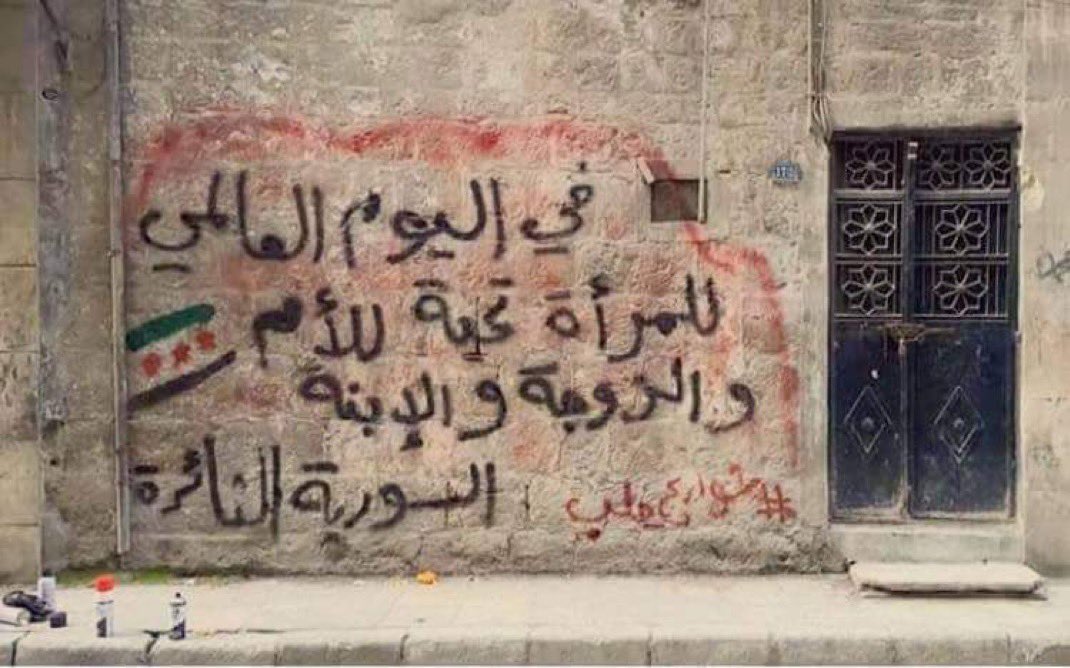 في اليوم العالمي
للمرأة تحية للأم
والزوجة والإبنة
السورية الثائرة
#شوارع_حلب